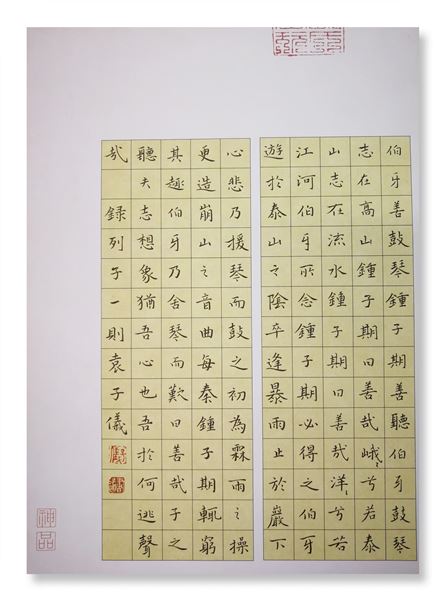 伯牙善鼓琴鍾子期善聽伯牙鼓琴
志在高山鍾子期曰善哉峨〻兮若泰
山志在流水鍾子期曰善哉洋〻兮若
江河伯牙所念鍾子期必得之伯牙
遊於泰山之陰卒逢暴雨止於巖下
心悲乃援琴而鼓之初為霖雨之操
更造崩山之音曲每奏鍾子期輒窮
其趣伯牙乃舍琴而歎曰善哉子之
聽夫志想象猶吾心也吾於何逃聲
哉 録列子一則袁子儀
神品